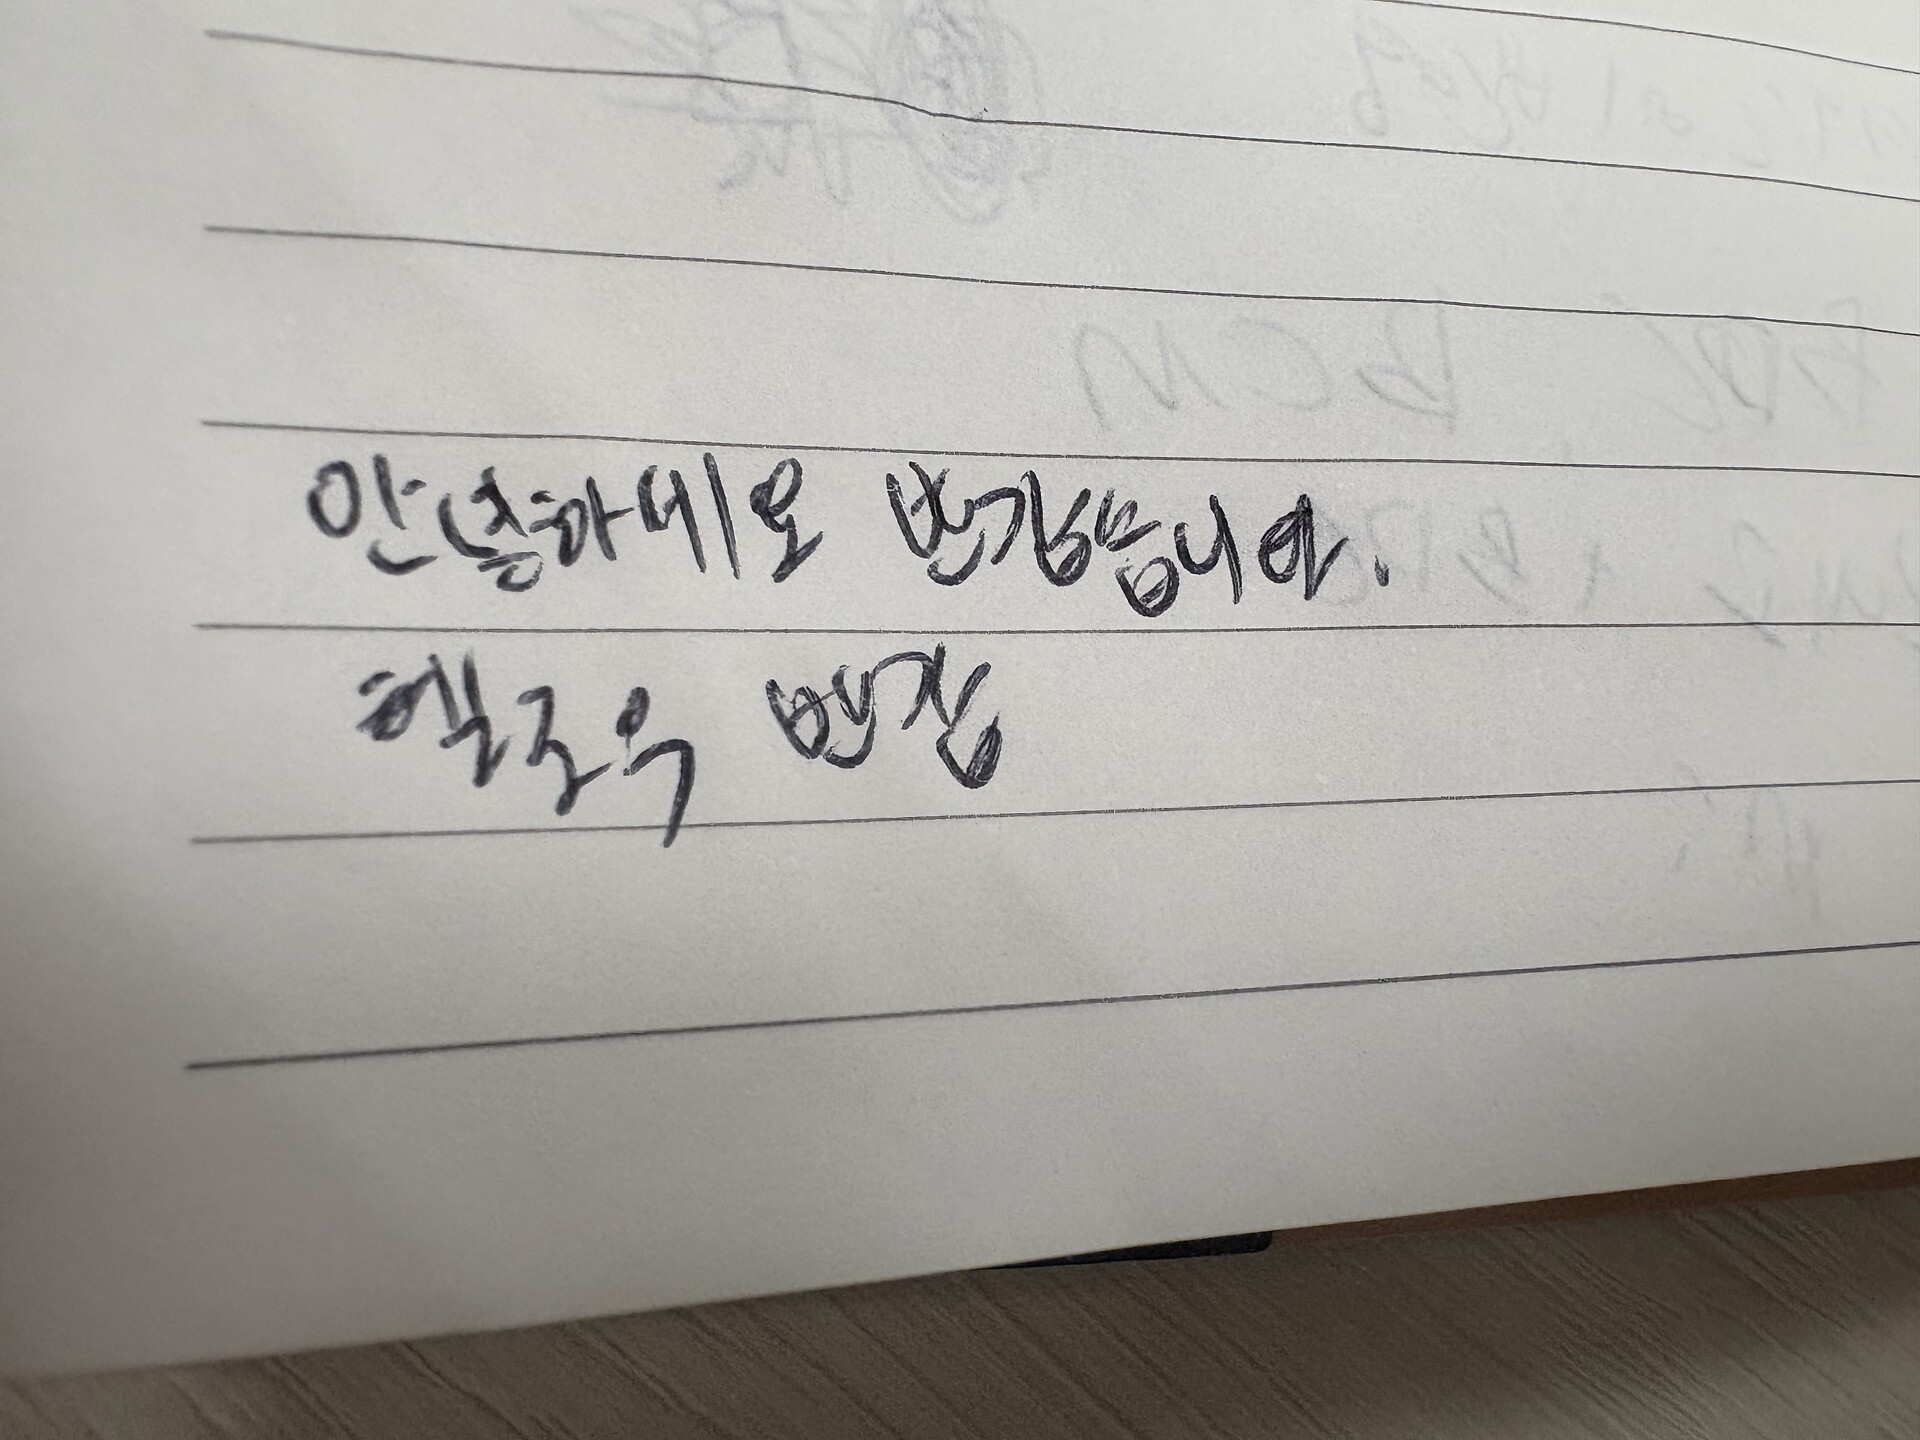 안녕하세요 반갑습니다.
헬로우 반갑